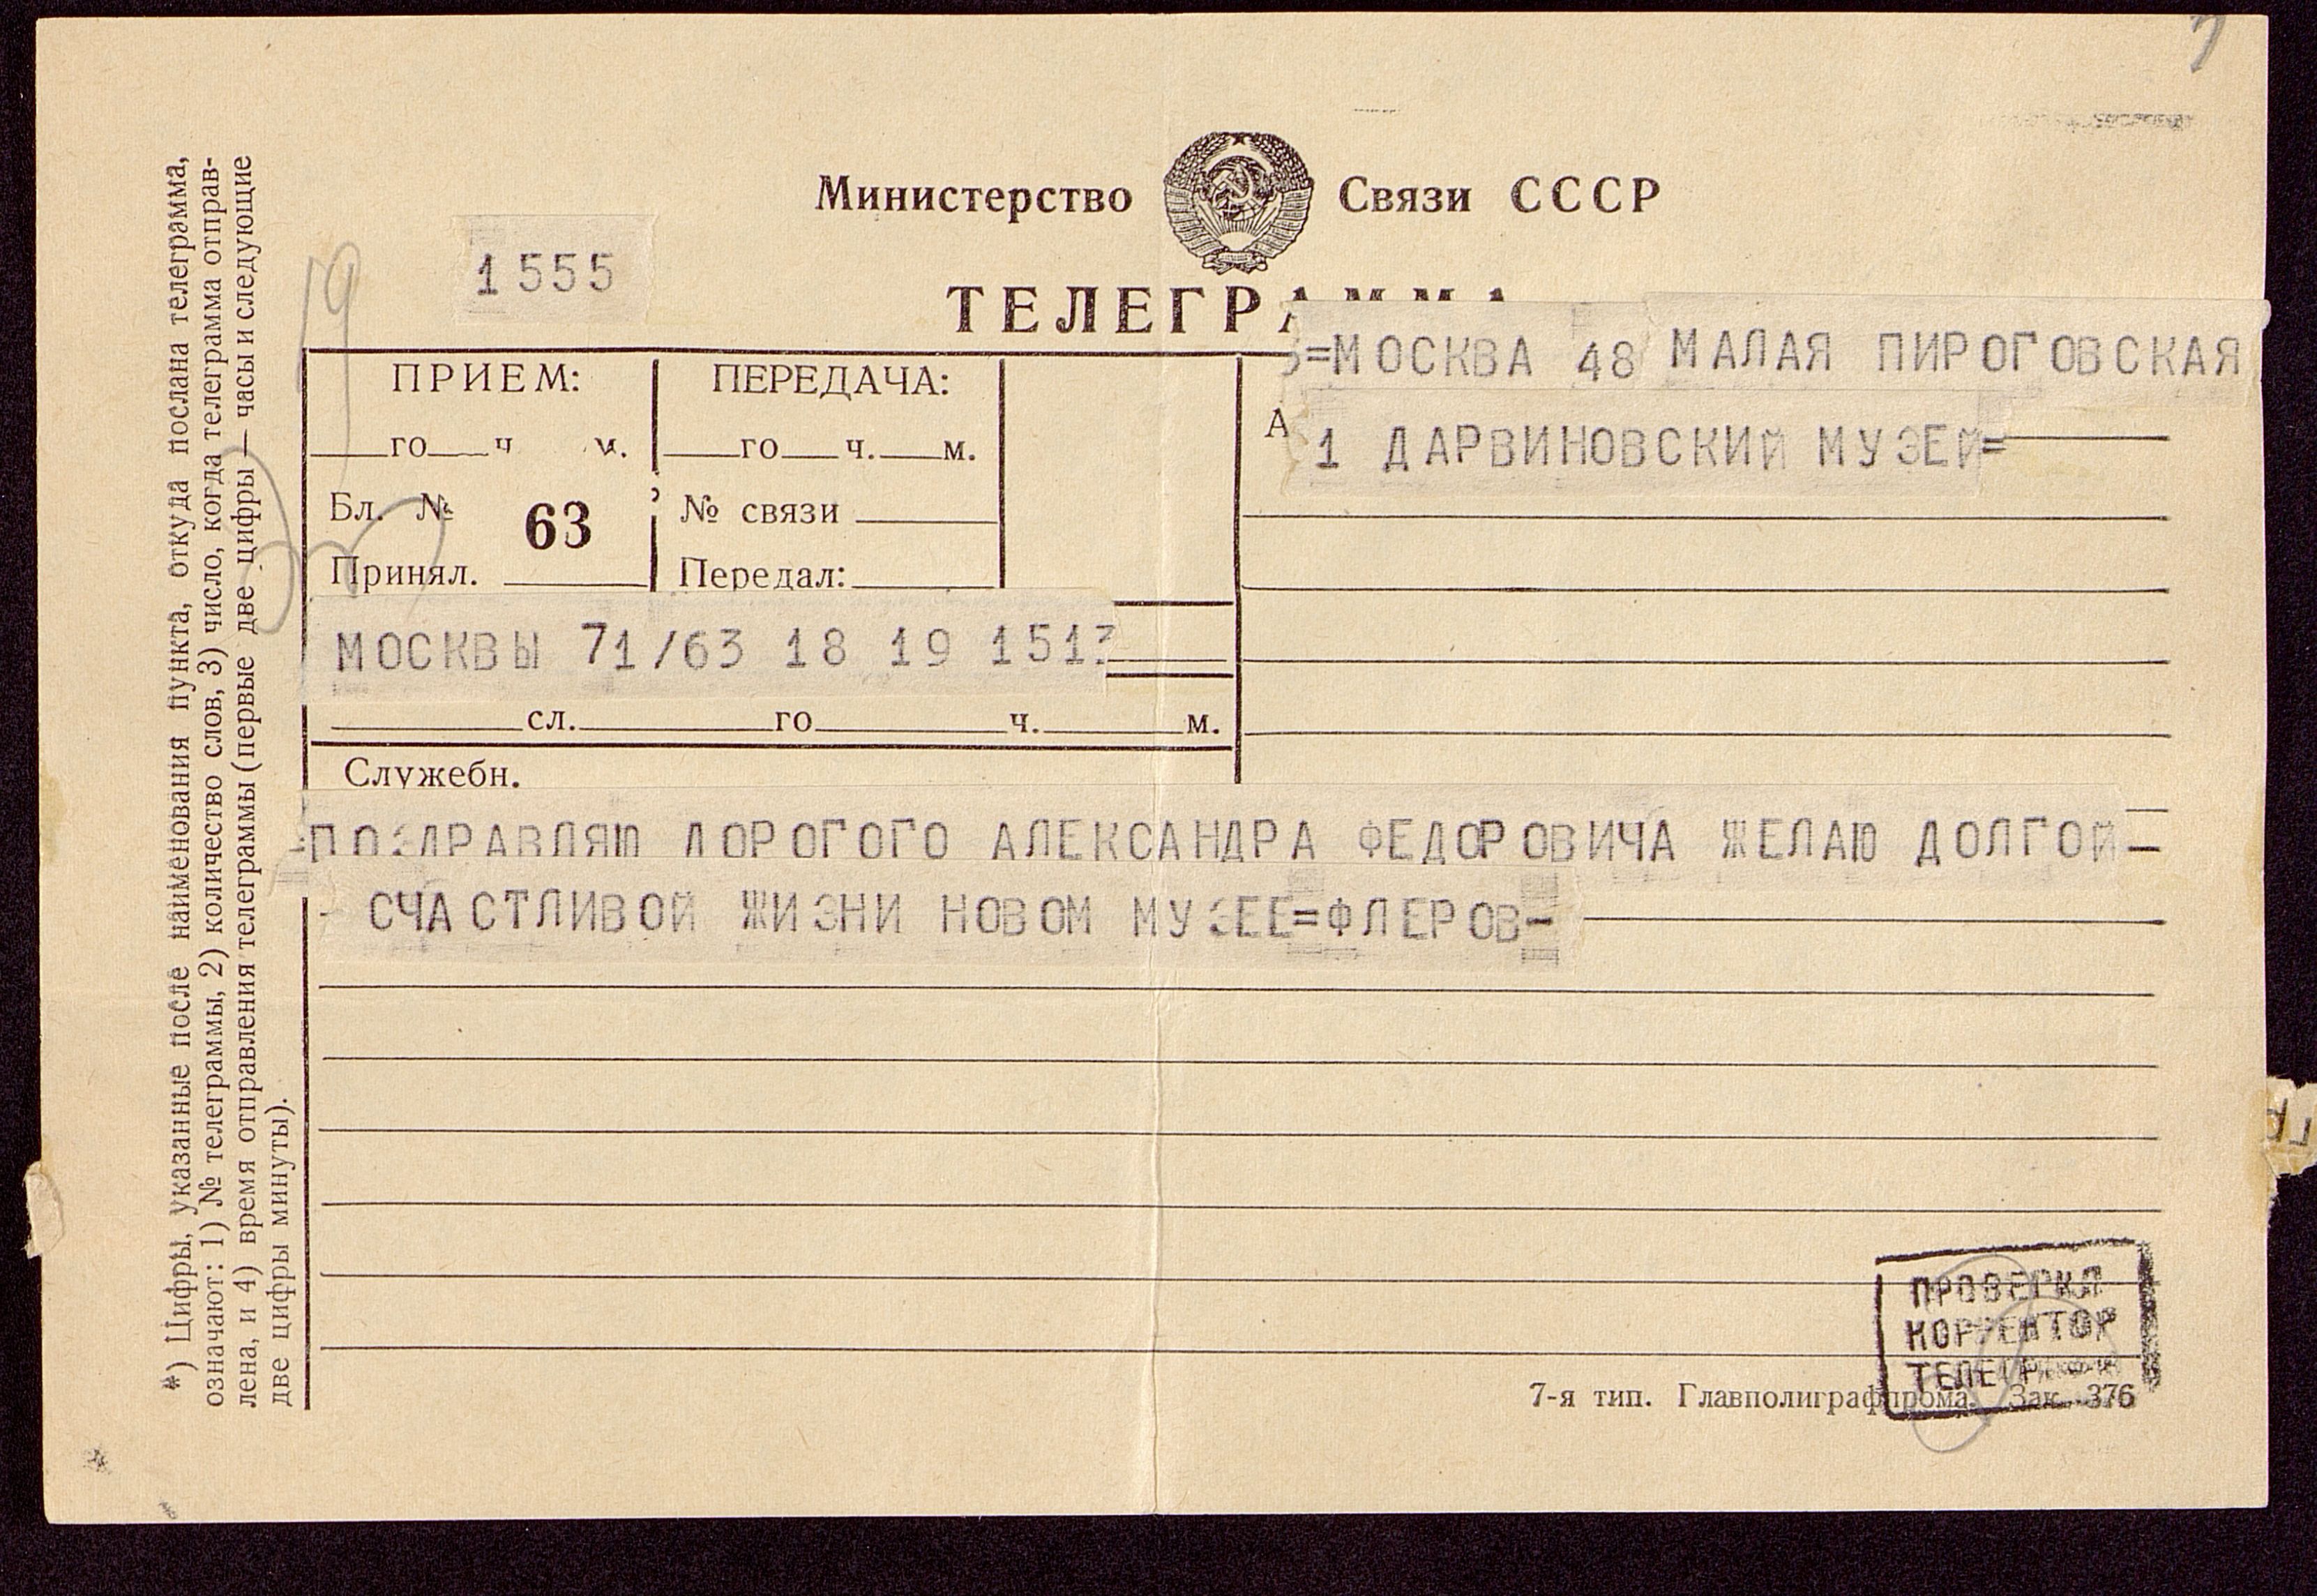 Министерство Связи СССР
1555
ТЕЛЕГРАММА
=МОСКВА 48 МАЛАЯ ПИРОГОВСКАЯ
1 ДАРВИНОВСКИЙ МУЗЕЙ=
ПРИЕМ:
го ч м.
Бл. № 63
Принял.
ПЕРЕДАЧА:
го ч. м.
№ связи
Передал:
А
МОСКВЫ 71/63 18 19 1513
сл. го ч. м.
Служебн.
=ПОЗДРАВЛЯЮ ДОРОГОГО АЛЕКСАНДРА ФЕДОРОВИЧА ЖЕЛАЮ ДОЛГОЙ-
- СЧАСТЛИВОЙ ЖИЗНИ НОВОМ МУЗЕЕ=ФЛЕРОВ-
*) Цифры, указанные после наименования пункта, откуда послана телеграмма,
означают: 1) № телеграммы, 2) количество слов, 3) число, когда телеграмма отправ-
лена, и 4) время отправления телеграммы (первые две цифры — часы и следующие
две цифры минуты).
ПРОВЕРКА
КОРРЕКТОР
7-я тип. Главполиграфпрома. Зак. 376